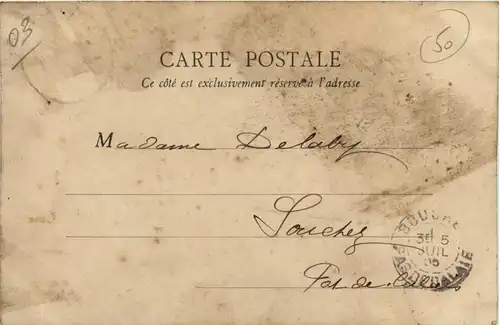 03
50
CARTE POSTALE
Ce côté est exclusivement réservé à l'adresse
Madame Delaby
Souchez
Pas de Calais
PAS-DE-CALAIS